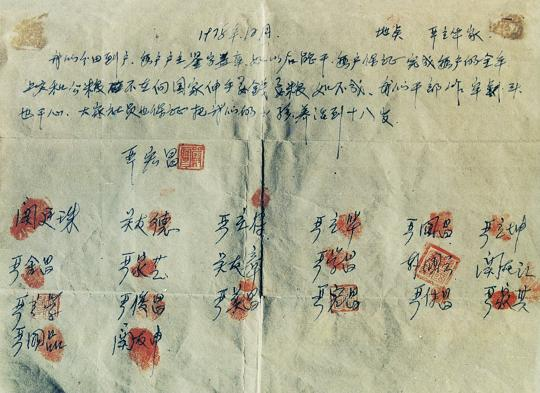 1978年12月 地点 严立华家
我们分田到户，每户户主签字盖章，如以后能干，每户保证完成每户的全年
上交和公粮，不在向国家伸手要钱要粮，如不成，我们干部作牢刹头
也干心，大家社员也保证把我们的小孩养活到十八岁。
严宏昌
关廷珠 关友德 严立符 严立华 严国昌 严立坤
严金昌 严家芝 关友章 严学昌 韩国云 关友江
严立学 严俊昌 严美昌 严宏昌 严付昌 严家其
严国品 关友申